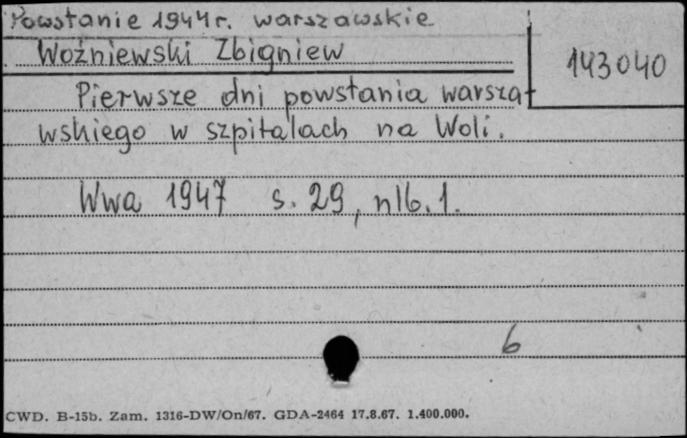 Powstanie 1944 r. warszawskie
Woźniewski Zbigniew
143040
Pierwsze dni powstania warsza-
wskiego w szpitalach na Woli.
Wwa 1947 s. 29, nlb. 1.
6
CWD. B-15b. Zam. 1316-DW/On/67. GDA-2464 17.8.67. 1.400.000.